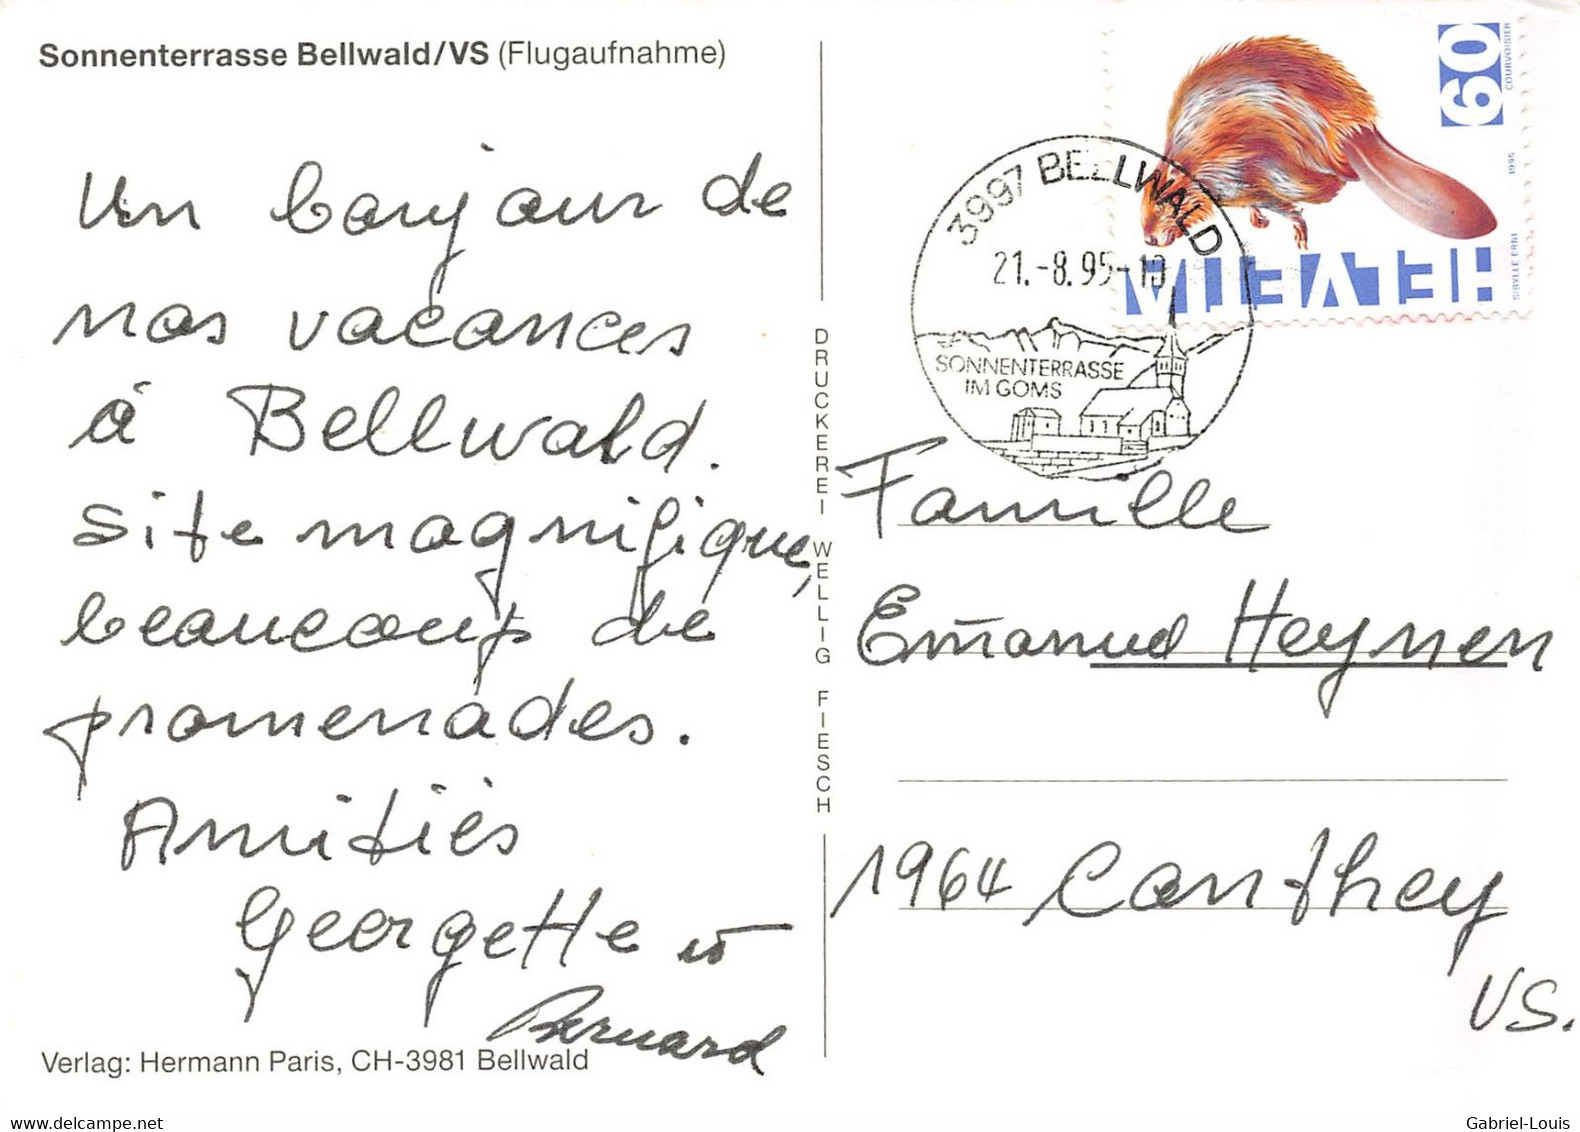 Sonnenterrasse Bellwald/VS (Flugaufnahme)
Un bonjour de
nos vacances
à Bellwald.
Site magnifique,
beaucoup de
promenades.
Amitiés
Georgette et
Bernard
Verlag: Hermann Paris, CH-3981 Bellwald
DRUCKEREI WELLIG FIESCH
60
COURVOISIER
1995
SIBYLLE ERNI
HELVETIA
3997 BELLWALD
21.-8.95-10
SONNENTERRASSE
IM GOMS
Famille
Emanuel Heynen
1964 Conthey
VS.
Gabriel-Louis